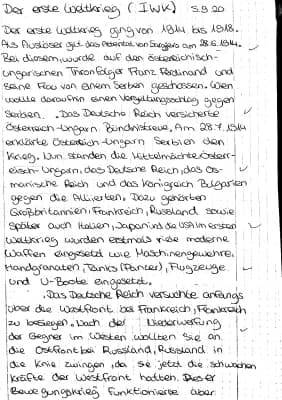 Der erste Weltkrieg (IWK) 5.9.20
Der erste Weltkrieg ging von 1914 bis 1918.
Als Auslöser gilt das Attentat von Sarajevo am 28.6.1914.
Bei diesem, wurde auf den österreichisch-
ungarischen Thronfolger Franz Ferdinand und
seine Frau von einem Serben geschossen. Wien
wollte daraufhin einen Vergeltungsschlag gegen
Serbien. Das Deutsche Reich versicherte
Österreich-Ungarn Bündnistreue. Am 28.7.1914
erklärte Österreich-Ungarn Serbien den
Krieg. Nun standen die Mittelmächte Österr-
eich-Ungarn, das Deutsche Reich, das Os-
manische Reich und das Königreich Bulgarien
gegen die Alliierten. Dazu gehörten
Großbritannien, Frankreich, Russland sowie
später auch Italien, Japan und die USA. Im ersten
Weltkrieg wurden erstmals viele moderne
Waffen eingesetzt wie Maschinengewehre,
Handgranaten, Tanks (Panzer), Flugzeuge
und U-Boote eingesetzt.
Das Deutsche Reich versuchte anfangs
über die Westfront bei Frankreich, Frankreich
zu besiegen. Nach der Niederwerfung
der Gegner im Westen wollten sie an
die Ostfront bei Russland, Russland in
die Knie zwingen, da sie jetzt die schwachen
Kräfte der Westfront hatten. Dieser
Bewegungskrieg funktionierte aber